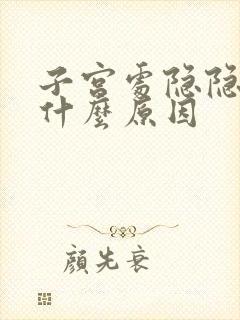 子宫处隐隐
什麽原因
顏先衰